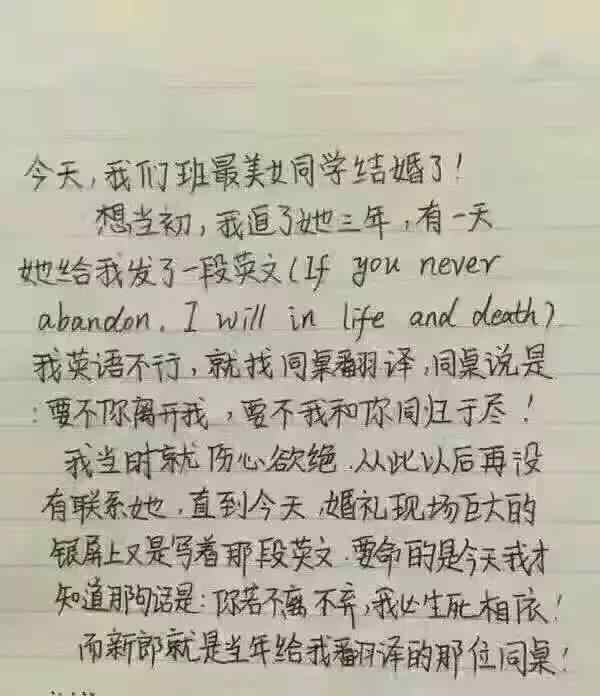 今天,我们班最美女同学结婚了!
想当初,我追了她三年,有一天
她给我发了一段英文(If you never
abandon. I will in life and death)
我英语不行,就找同桌翻译,同桌说是
:要不你离开我,要不我和你同归于尽!
我当时就伤心欲绝.从此以后再没
有联系她,直到今天,婚礼现场巨大的
银屏上又是写着那段英文.要命的是今天我才
知道那句话是:你若不离不弃,我必生死相依!
而新郎就是当年给我翻译的那位同桌!